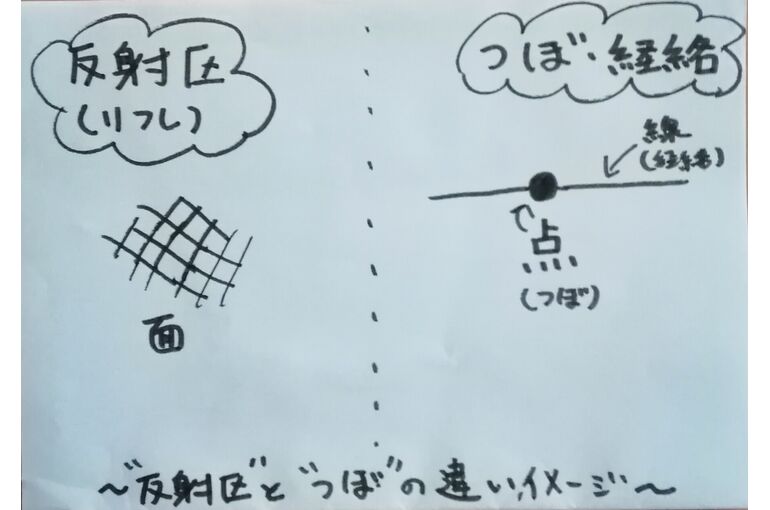 反射区
(リフレ)
面
つぼ・経絡
線
(経絡)
点
(つぼ)
〜"反射区"と"つぼ"の違い,イメージ〜